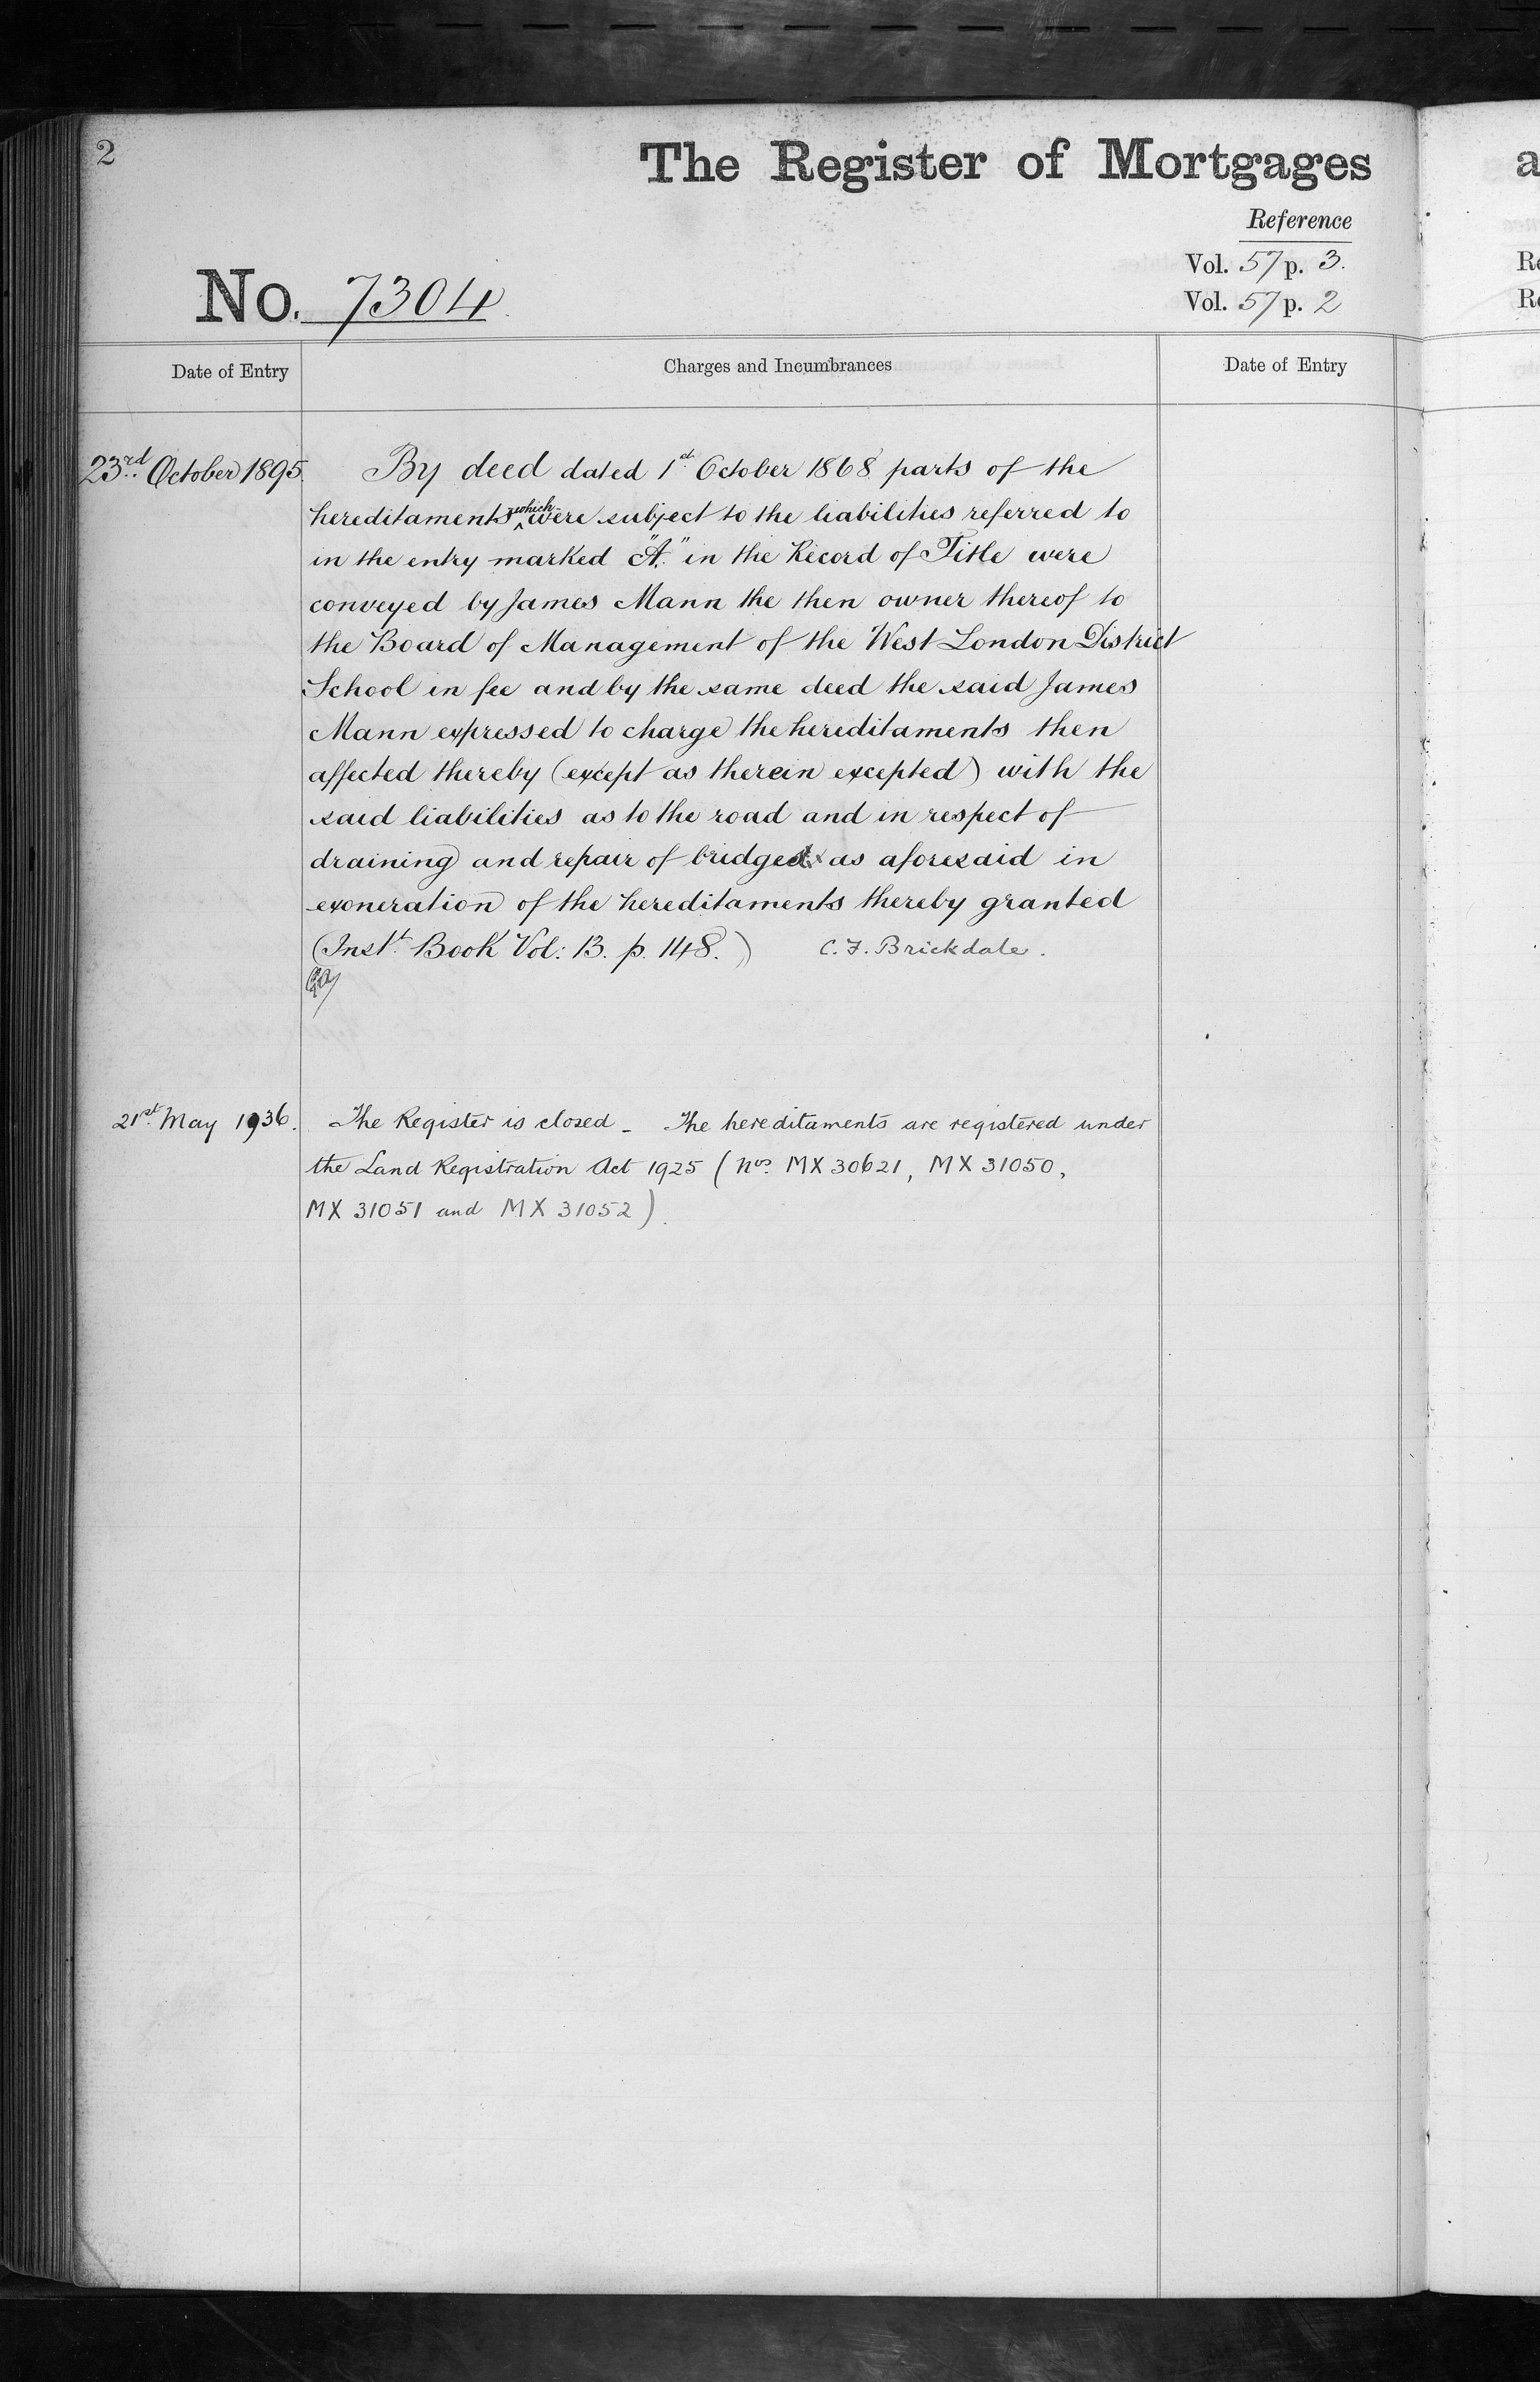 2
The Register of Mortgages
Reference
Vol. 57 p. 3.
Vol. 57 p. 2
No. 7304
Date of Entry
Charges and Incumbrances
Date of Entry
23rd. October 1895.
By deed dated 1st October 1868 parts of the
hereditaments which were subject to the liabilities referred to
in the entry marked "A." in the Record of Title were
conveyed by James Mann the then owner thereof to
the Board of Management of the West London District
School in fee and by the same deed the said James
Mann expressed to charge the hereditaments then
affected thereby (except as therein excepted) with the
said liabilities as to the road and in respect of
draining and repair of bridges as aforesaid in
exoneration of the hereditaments thereby granted
(Inst. Book Vol: 13. p. 148.) C. F. Brickdale.
21st. May 1936.
The Register is closed - The hereditaments are registered under
the Land Registration Act 1925 (nos. MX 30621, MX 31050,
MX 31051 and MX 31052).
a
Re
Re